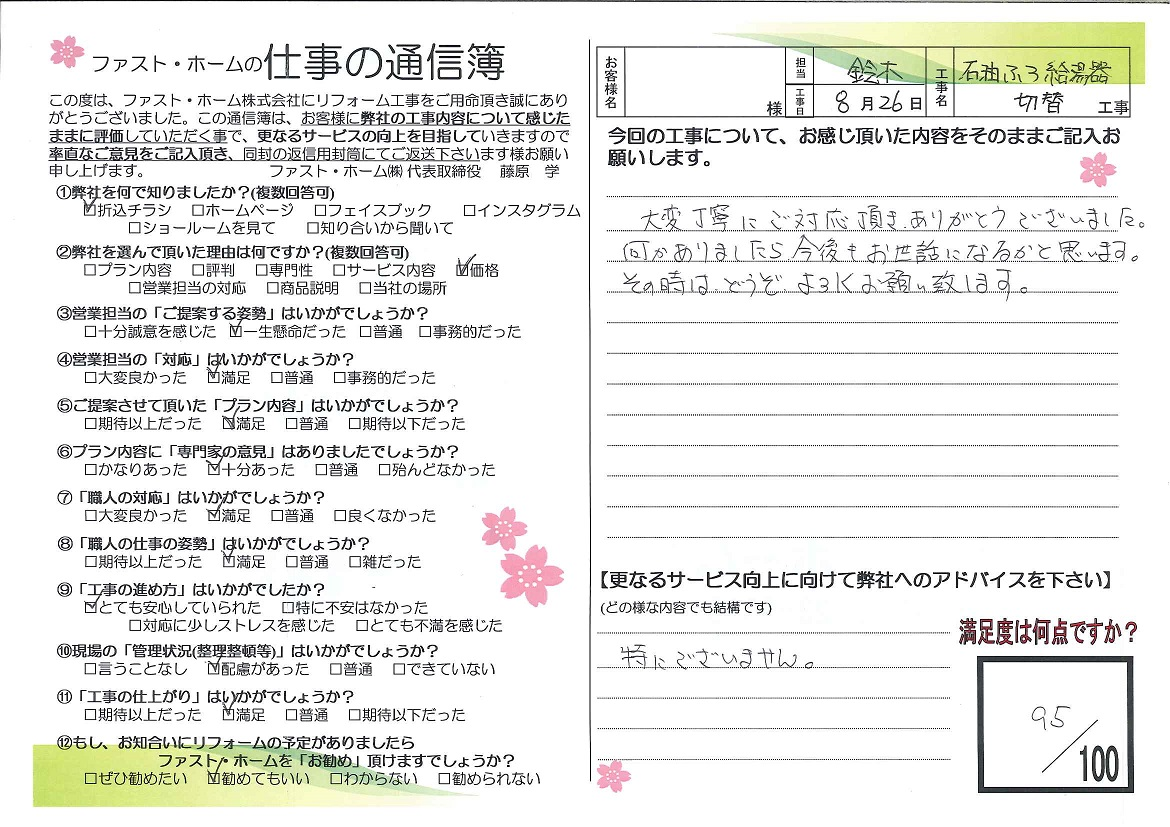 ファスト・ホームの仕事の通信簿
この度は、ファスト・ホーム株式会社にリフォーム工事をご用命頂き誠にあり
がとうございました。この通信簿は、お客様に弊社の工事内容について感じた
ままに評価していただく事で、更なるサービスの向上を目指していきますので
率直なご意見をご記入頂き、同封の返信用封筒にてご返送下さいます様お願い
申し上げます。 ファスト・ホーム㈱ 代表取締役 藤原 学
①弊社を何で知りましたか？(複数回答可)
☑折込チラシ □ホームページ □フェイスブック □インスタグラム
□ショールームを見て □知り合いから聞いて
②弊社を選んで頂いた理由は何ですか？(複数回答可)
□プラン内容 □評判 □専門性 □サービス内容 ☑価格
□営業担当の対応 □商品説明 □当社の場所
③営業担当の「ご提案する姿勢」はいかがでしょうか？
□十分誠意を感じた ☑一生懸命だった □普通 □事務的だった
④営業担当の「対応」はいかがでしょうか？
□大変良かった ☑満足 □普通 □事務的だった
⑤ご提案させて頂いた「プラン内容」はいかがでしょうか？
□期待以上だった ☑満足 □普通 □期待以下だった
⑥プラン内容に「専門家の意見」はありましたでしょうか？
□かなりあった ☑十分あった □普通 □殆んどなかった
⑦「職人の対応」はいかがでしょうか？
□大変良かった ☑満足 □普通 □良くなかった
⑧「職人の仕事の姿勢」はいかがでしょうか？
□期待以上だった ☑満足 □普通 □雑だった
⑨「工事の進め方」はいかがでしたか？
☑とても安心していられた □特に不安はなかった
□対応に少しストレスを感じた □とても不満を感じた
⑩現場の「管理状況(整理整頓等)」はいかがでしょうか？
□言うことなし ☑配慮があった □普通 □できていない
⑪「工事の仕上がり」はいかがでしょうか？
□期待以上だった ☑満足 □普通 □期待以下だった
⑫もし、お知合いにリフォームの予定がありましたら
ファスト・ホームを「お勧め」頂けますでしょうか？
□ぜひ勧めたい ☑勧めてもいい □わからない □勧められない
お客様名 様 担当 鈴木 工事日 8月26日 工事名 石油ふろ給湯器 切替 工事
今回の工事について、お感じ頂いた内容をそのままご記入お
願いします。
大変丁寧にご対応頂き、ありがとうございました。
何かありましたら今後もお世話になるかと思います。
その時は、どうぞ、よろしくお願い致します。
【更なるサービス向上に向けて弊社へのアドバイスを下さい】
(どの様な内容でも結構です)
特にございません。
満足度は何点ですか？
95/100